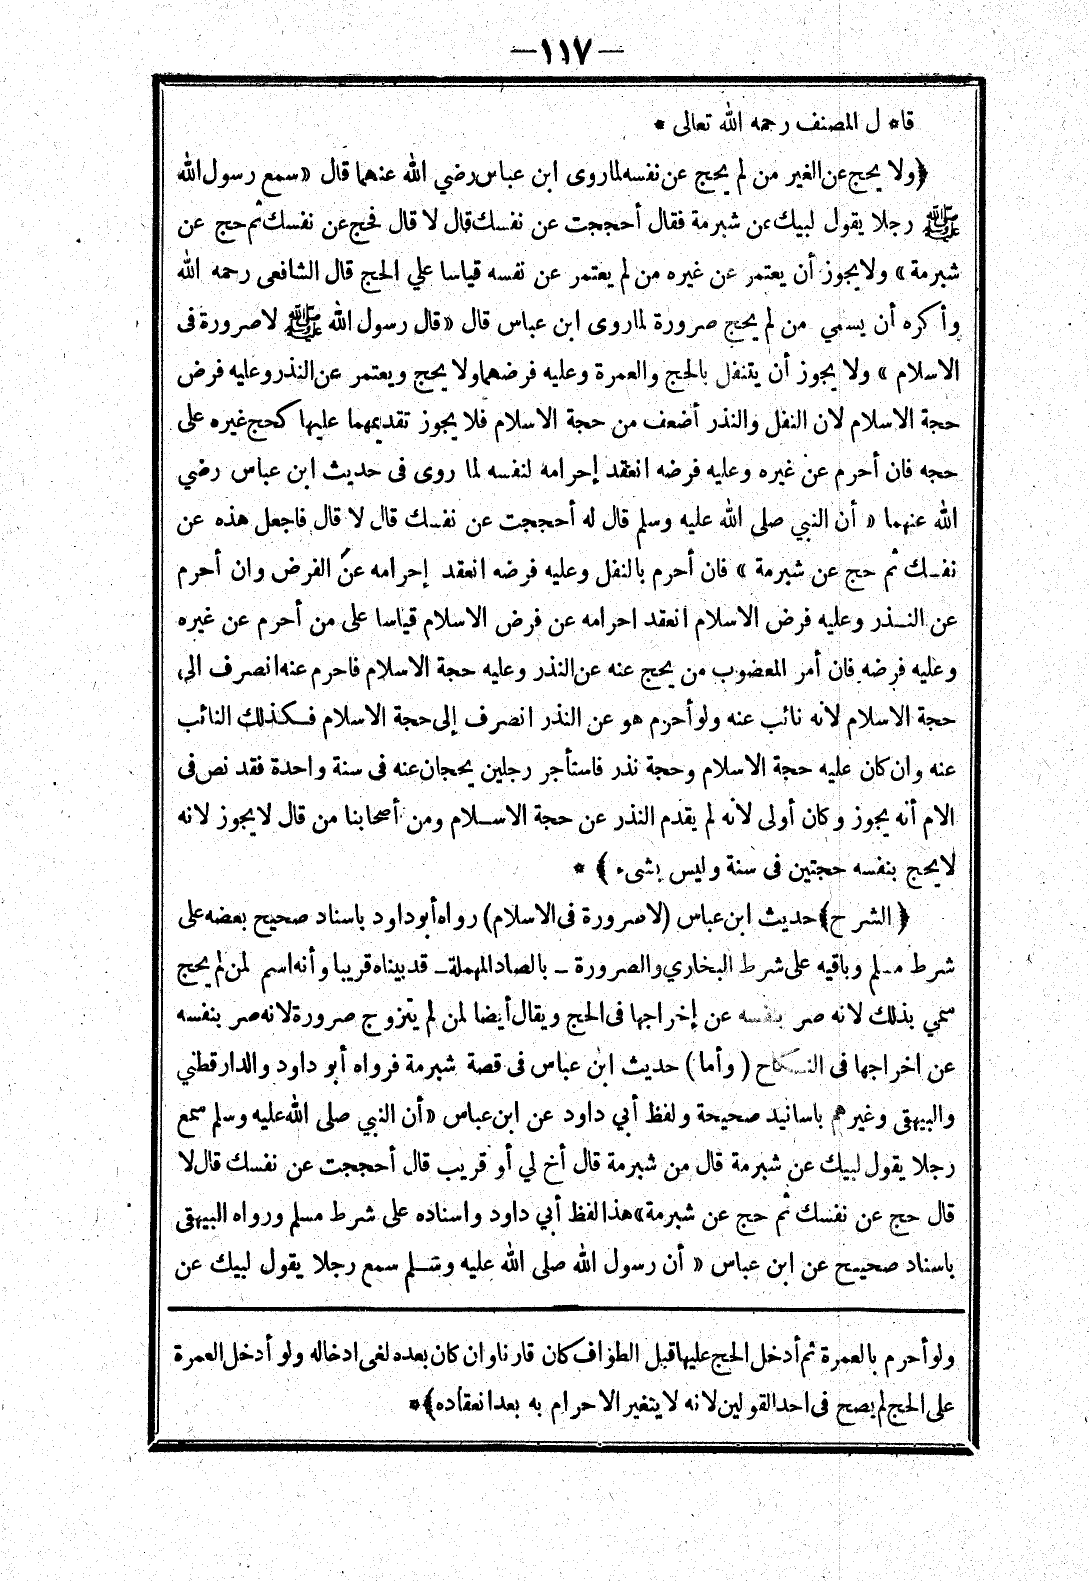 —١١٧—
قا* ل المصنف رحمه الله تعالى *
﴿ولا يحج عن الغير من لم يحج عن نفسه لما روى ابن عباس رضي الله عنهما قال «سمع رسول الله
ﷺ رجلا يقول لبيك عن شبرمة فقال أحججت عن نفسك قال لا قال فحج عن نفسك ثم حج عن
شبرمة» ولا يجوز أن يعتمر عن غيره من لم يعتمر عن نفسه قياسا علي الحج قال الشافعى رحمه الله
وأكره أن يسمي من لم يحج صرورة لما روى ابن عباس قال «قال رسول الله ﷺ لا صرورة فى
الاسلام» ولا يجوز أن يتنفل بالحج والعمرة وعليه فرضهما ولا يحج ويعتمر عن النذر وعليه فرض
حجة الاسلام لان النفل والنذر أضعف من حجة الاسلام فلا يجوز تقديمهما عليها كحج غيره على
حجه فان أحرم عن غيره وعليه فرضه انعقد إحرامه لنفسه لما روى فى حديث ابن عباس رضي
الله عنهما «أن النبي صلى الله عليه وسلم قال له أحججت عن نفسك قال لا قال فاجعل هذه عن
نفسك ثم حج عن شبرمة» فان أحرم بالنفل وعليه فرضه انعقد إحرامه عن الفرض وان أحرم
عن النـذر وعليه فرض الاسلام انعقد احرامه عن فرض الاسلام قياسا على من أحرم عن غيره
وعليه فرضه فان أمر المعضوب من يحج عنه عن النذر وعليه حجة الاسلام فاحرم عنه انصرف الى
حجة الاسلام لانه نائب عنه ولو أحرم هو عن النذر انصرف إلى حجة الاسلام فـكذلك النائب
عنه وان كان عليه حجة الاسلام وحجة نذر فاستأجر رجلين يحجان عنه فى سنة واحدة فقد نص فى
الام أنه يجوز وكان أولى لانه لم يقدم النذر عن حجة الاسـلام ومن أصحابنا من قال لا يجوز لانه
لا يحج بنفسه حجتين فى سنة وليس بشىء﴾ *
﴿الشرح﴾ حديث ابن عباس (لا صرورة فى الاسلام) رواه أبو داود باسناد صحيح بعضه على
شرط مسلم وباقيه على شرط البخاري والصرورة ـ بالصاد المهملة ـ قد بيناه قريبا وأنه اسم لمن لم يحج
سمي بذلك لانه صر بنفسه عن إخراجها فى الحج ويقال أيضا لمن لم يتزوج صرورة لانه صر بنفسه
عن اخراجها فى النـكاح (وأما) حديث ابن عباس فى قصة شبرمة فرواه أبو داود والدارقطني
والبيهقى وغيرهم باسانيد صحيحة ولفظ أبي داود عن ابن عباس «أن النبي صلى الله عليه وسلم سمع
رجلا يقول لبيك عن شبرمة قال من شبرمة قال أخ لي أو قريب قال أحججت عن نفسك قال لا
قال حج عن نفسك ثم حج عن شبرمة» هذا لفظ أبي داود واسناده على شرط مسلم ورواه البيهقى
باسناد صحيـح عن ابن عباس «أن رسول الله صلى الله عليه وسـلم سمع رجلا يقول لبيك عن
ولو أحرم بالعمرة ثم أدخل الحج عليها قبل الطواف كان قارنا وان كان بعده لغى ادخاله ولو أدخل العمرة
على الحج لم يصح فى احد القولين لانه لا يتغير الاحرام به بعد انعقاده﴾*